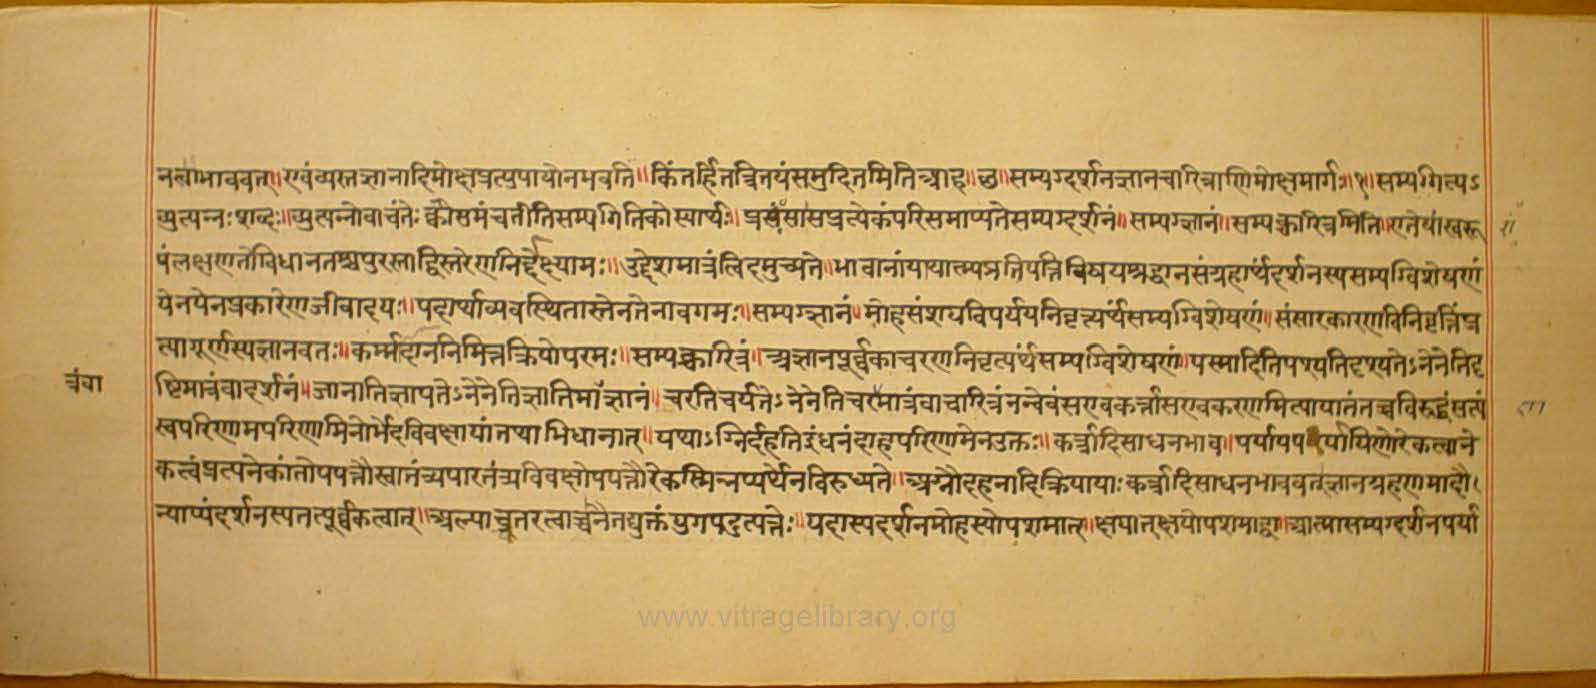 नत्वाभाववत्॥एवंव्यस्तज्ञानादिमोक्षप्रत्युपायोनभवति॥किंतर्हितत्रितयंसमुदितमितिआह॥छ॥सम्यग्दर्शनज्ञानचारित्राणिमोक्षमार्गः॥१॥सम्यगित्यऽ
व्युत्पन्नःशब्दः॥व्युत्पन्नोवाचंतेःक्वौसमंचतीतिसम्यगितिकोस्यार्थः॥प्रसंसासप्रत्येकंपरिसमाप्यतेसम्यग्दर्शनं॥सम्यग्ज्ञानं॥सम्यक्चारित्रमिति॥एतेषांस्वरू
पंलक्षणतोविधानतश्चपुरस्ताद्विस्तरेणनिर्द्देक्ष्यामः॥उद्देशमात्रंत्विदमुच्यते॥भावानांयाथात्म्यप्रतिपत्तिविषयश्रद्धानसंग्रहार्थंदर्शनस्यसम्यग्विशेषणं
येनयेनप्रकारेणजीवादयः॥पदार्थाव्यवस्थितास्तेनतेनावगमः॥सम्यग्ज्ञानं॥मोहसंशयविपर्ययनिवृत्त्यर्थंसम्यग्विशेषणं॥संसारकारणविनिवृत्तिंप्र
त्यागूर्णस्यज्ञानवतः॥कर्म्मादाननिमित्तक्रियोपरमः॥सम्यक्चारित्रं॥अज्ञानपूर्व्वकाचरणनिवृत्त्यर्थंसम्यग्विशेषणं॥पस्मादितिपश्यतिदृश्यतेऽनेनेतिदृ
ष्टिमात्रंवादर्शनं॥जानातिज्ञायतेऽनेनेतिज्ञातिमांज्ञानं॥चरतिचर्यतेऽनेनेतिचरमात्रंवाचारित्रंनन्वेवंसएवकर्त्तासएवकरणमित्यायातंतच्चविरुद्धंसत्यं
स्वपरिणामपरिणामिनोर्भेदविवक्षायांतथाभिधानात्॥यथाऽग्निर्दहतिइंधनंदाहपरिणामेनउक्तः॥कर्त्रादिसाधनभाव॥पर्यायपर्यायिणोरेकत्वाने
कत्वंप्रत्यनेकांतोपपत्तौस्वातंत्र्यपारतंत्र्यविवक्षोपपत्तौरेकस्मिन्नप्यर्थेनविरुध्यते॥अग्नौदहनादिक्रियायाःकर्त्रादिसाधनभाववतज्ञानग्रहणमादौ।
न्याय्यंदर्शनस्यतत्पूर्व्वकत्वात्॥अल्पाच्तरत्वाच्चनैतद्युक्तंयुगपदुत्पत्तेः॥यदास्यदर्शनमोहस्योपशमात्॥क्षयात्क्षयोपशमाद्वा॥आत्मासम्यग्दर्शनपर्या
www.vitragelibrary.org